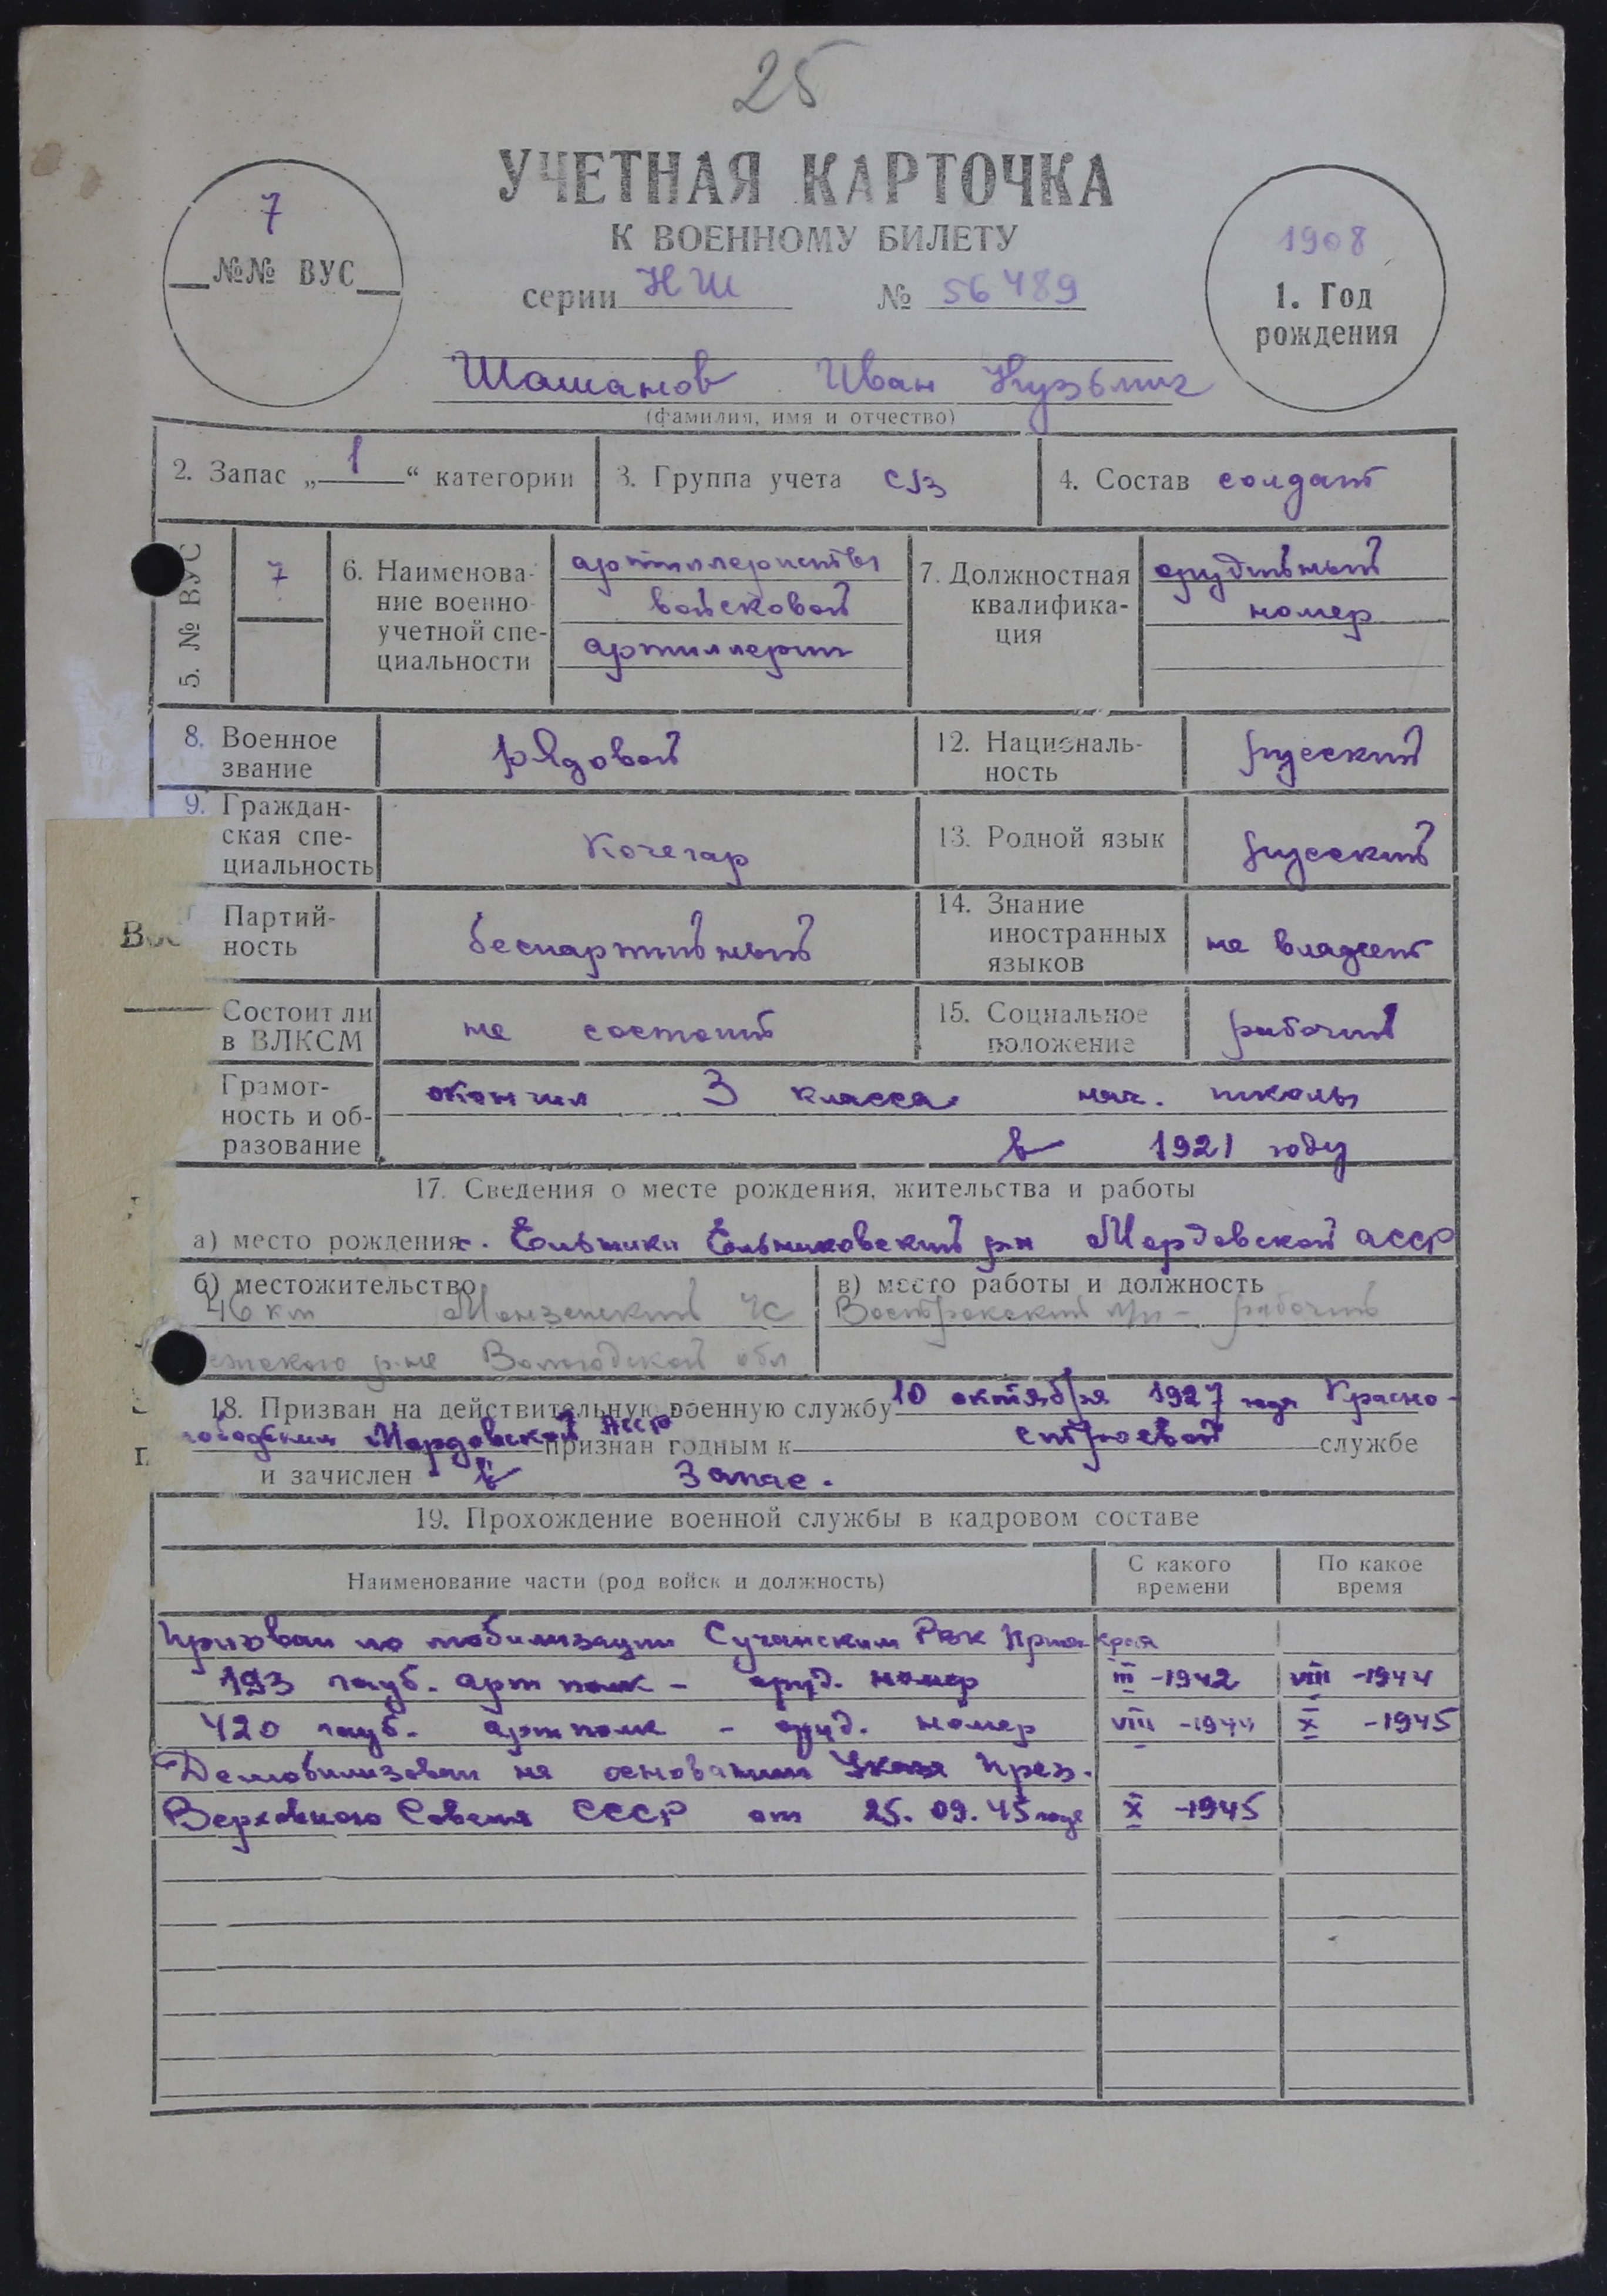 25
УЧЕТНАЯ КАРТОЧКА
К ВОЕННОМУ БИЛЕТУ
серии НШ № 56489
7
№№ ВУС
1908
1. Год
рождения
Шашанов Иван Кузьмич
(фамилия, имя и отчество)
2. Запас „1“ категории
3. Группа учета
4. Состав солдат
5. № ВУС
7
6. Наименова-
ние военно
учетной спе-
циальности
артиллеристы
войсковой
артиллерии
7. Должностная
квалифика-
ция
орудийный
номер
8. Военное
звание
рядовой
12. Националь-
ность
русский
9. Граждан-
ская спе-
циальность
Кочегар
13. Родной язык
русский
Партий-
ность
беспартийный
14. Знание
иностранных
языков
не владеет
Состоит ли
в ВЛКСМ
не состоит
15. Социальное
положение
рабочий
Грамот-
ность и об-
разование
окончил 3 класса нач. школы
в 1921 году
17. Сведения о месте рождения, жительства и работы
а) место рождения с. Ельники Ельниковский р-н Мордовской АССР
б) местожительство
46 км Монзенский
р-на Вологодской обл
в) место работы и должность
рабочий
18. Призван на действительную военную службу 10 октября 1927 года Красно-
Мордовской АССР признан годным к строевой службе
и зачислен в запас.
19. Прохождение военной службы в кадровом составе
Наименование части (род войск и должность)
С какого
времени
По какое
время
Призван по мобилизации Сучанским РВК Прим. края
193 гауб. арт полк - оруд. номер III -1942 VIII -1944
420 гауб. артполк - оруд. номер VIII -1944 X -1945
Демобилизован на основании Указа През.
Верховного Совета СССР от 25.09.45 года X -1945